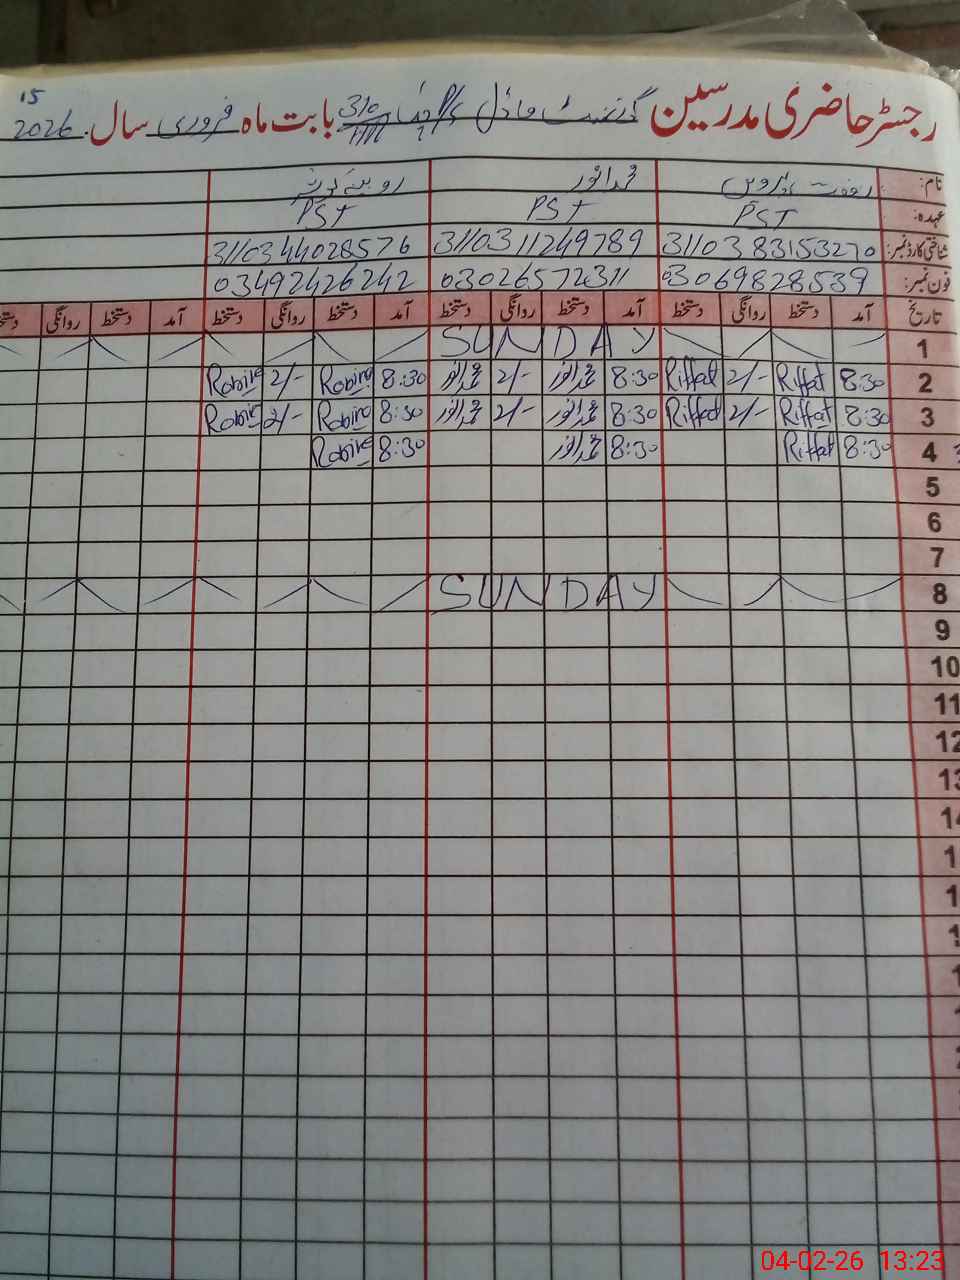 15
رجسٹر حاضری مدرسین گورنمنٹ ماڈل P/S چک 310/HR بابت ماہ فروری سال 2026
نام: رفعت پروین محمد انور روبینہ
عہدہ: PST PST PST
شناختی کارڈ نمبر: 3110383153270 3110311249789 3110344028576
فون نمبر: 03069828539 03026572311 03492426242
تاریخ آمد دستخط روانگی دستخط آمد دستخط روانگی دستخط آمد دستخط روانگی دستخط آمد دستخط روانگی دستخط
1 SUNDAY
2 8:30 Riffat 2/- Riffat 8:30 محمد انور 2/- محمد انور 8:30 Robina 2/- Robina
3 8:30 Riffat 2/- Riffat 8:30 محمد انور 2/- محمد انور 8:30 Robina 2/- Robina
4 8:30 Riffat 8:30 محمد انور 8:30 Robina
5
6
7
8 SUNDAY
9
10
11
12
13
04-02-26 13:23